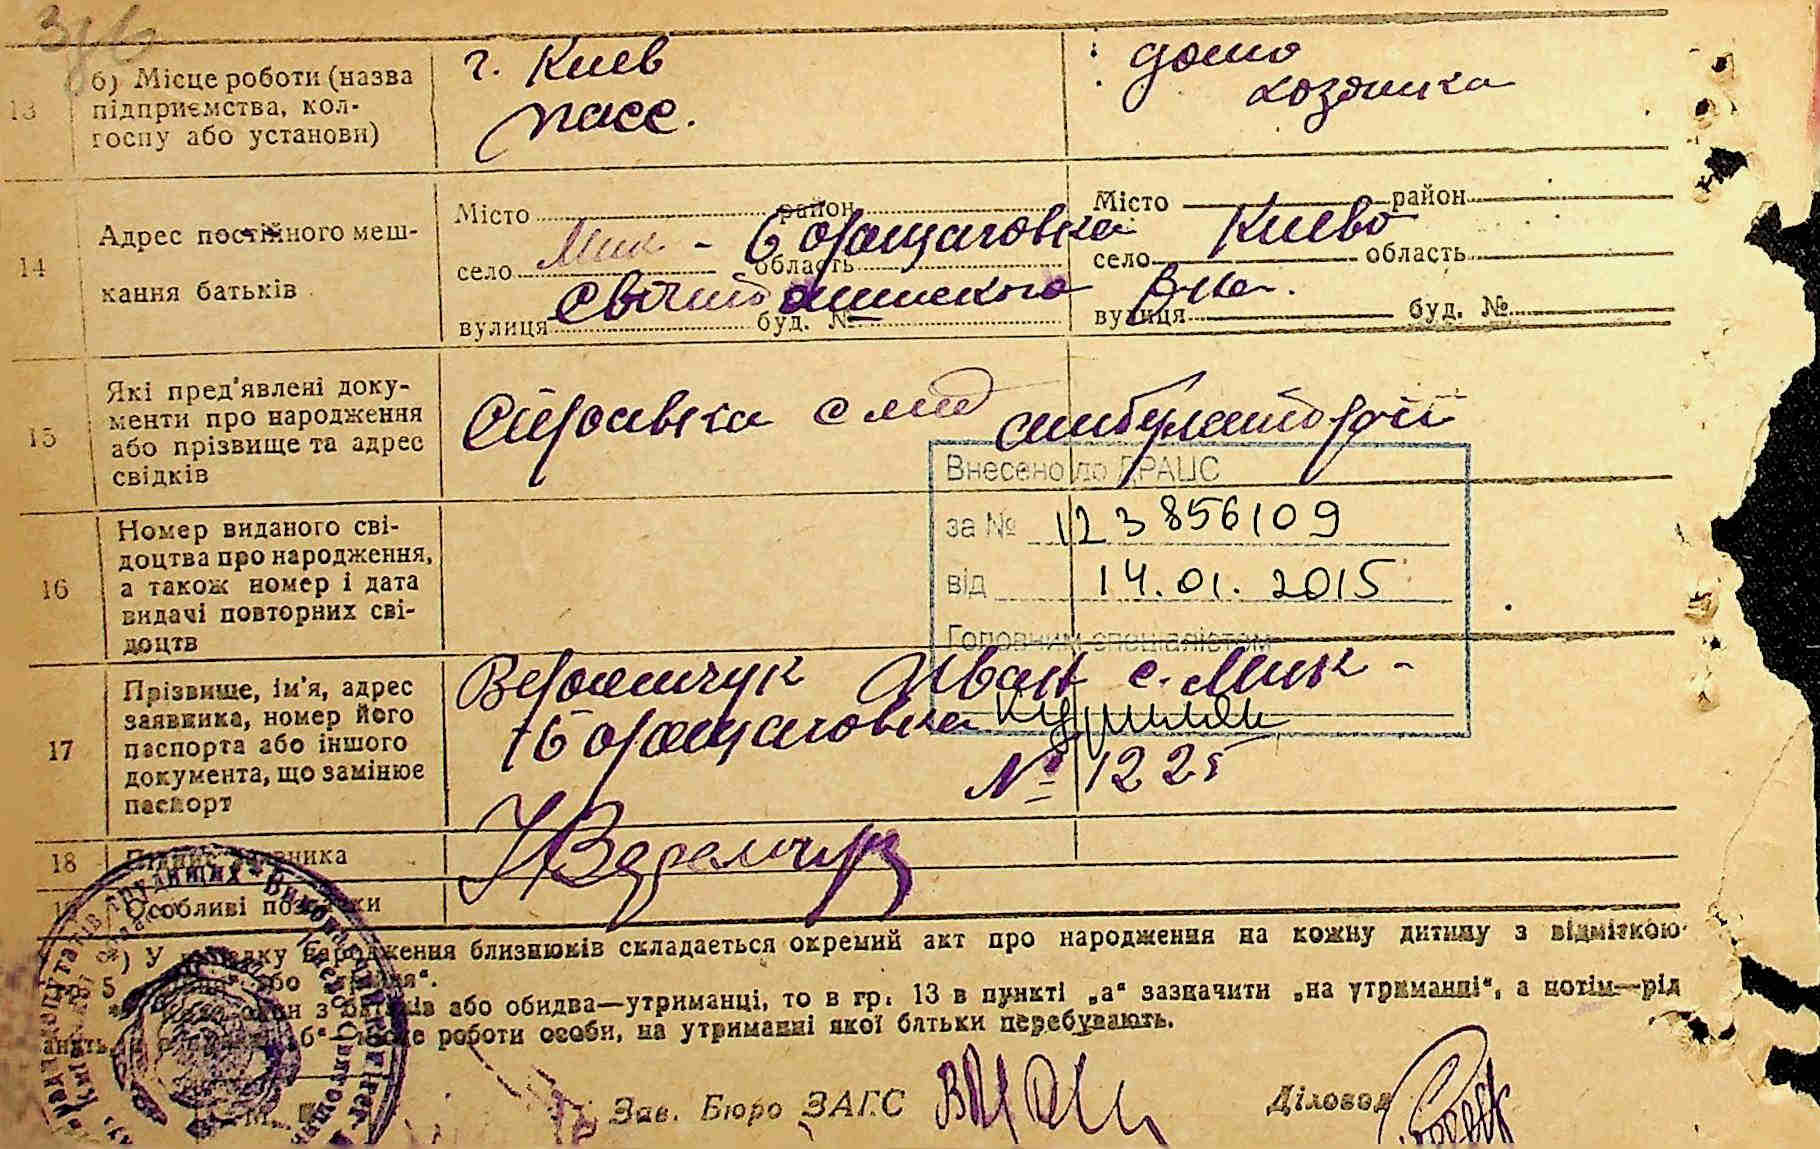 316
13 б) Місце роботи (назва
підприємства, кол-
госпу або установи)
г. Киев
пасс.
домо
хозяика
14 Адрес постійного меш-
кання батьків
Місто район Місто район
Мик - Борщаговка Киево
село область село область
Святошинского
вулиця буд. № вулиця буд. №
15 Які пред'явлені доку-
менти про народження
або прізвище та адрес
свідків
Справка с амбулаторіі
Внесено до ДРАЦС
за № 123856109
від 14.01.2015
Головним спеціалістом
16 Номер виданого сві-
доцтва про народження,
а також номер і дата
видачі повторних сві-
доцтв
17 Прізвище, ім'я, адрес
заявника, номер його
паспорта або іншого
документа, що замінює
паспорт
Веремчук Иван с. Мик-
Борщаговка
№ 1225
18 Підпис заявника
Веремчук
19 Особливі позначки
*) У випадку народження близнюків складається окремий акт про народження на кожну дитину з відміткою
або
один з батьків або обидва—утриманці, то в гр. 13 в пункті „а“ зазначити „на утриманні“, а потім—рід
„б“—місце роботи особи, на утриманні якої батьки перебувають.
Зав. Бюро ЗАГС Діловод